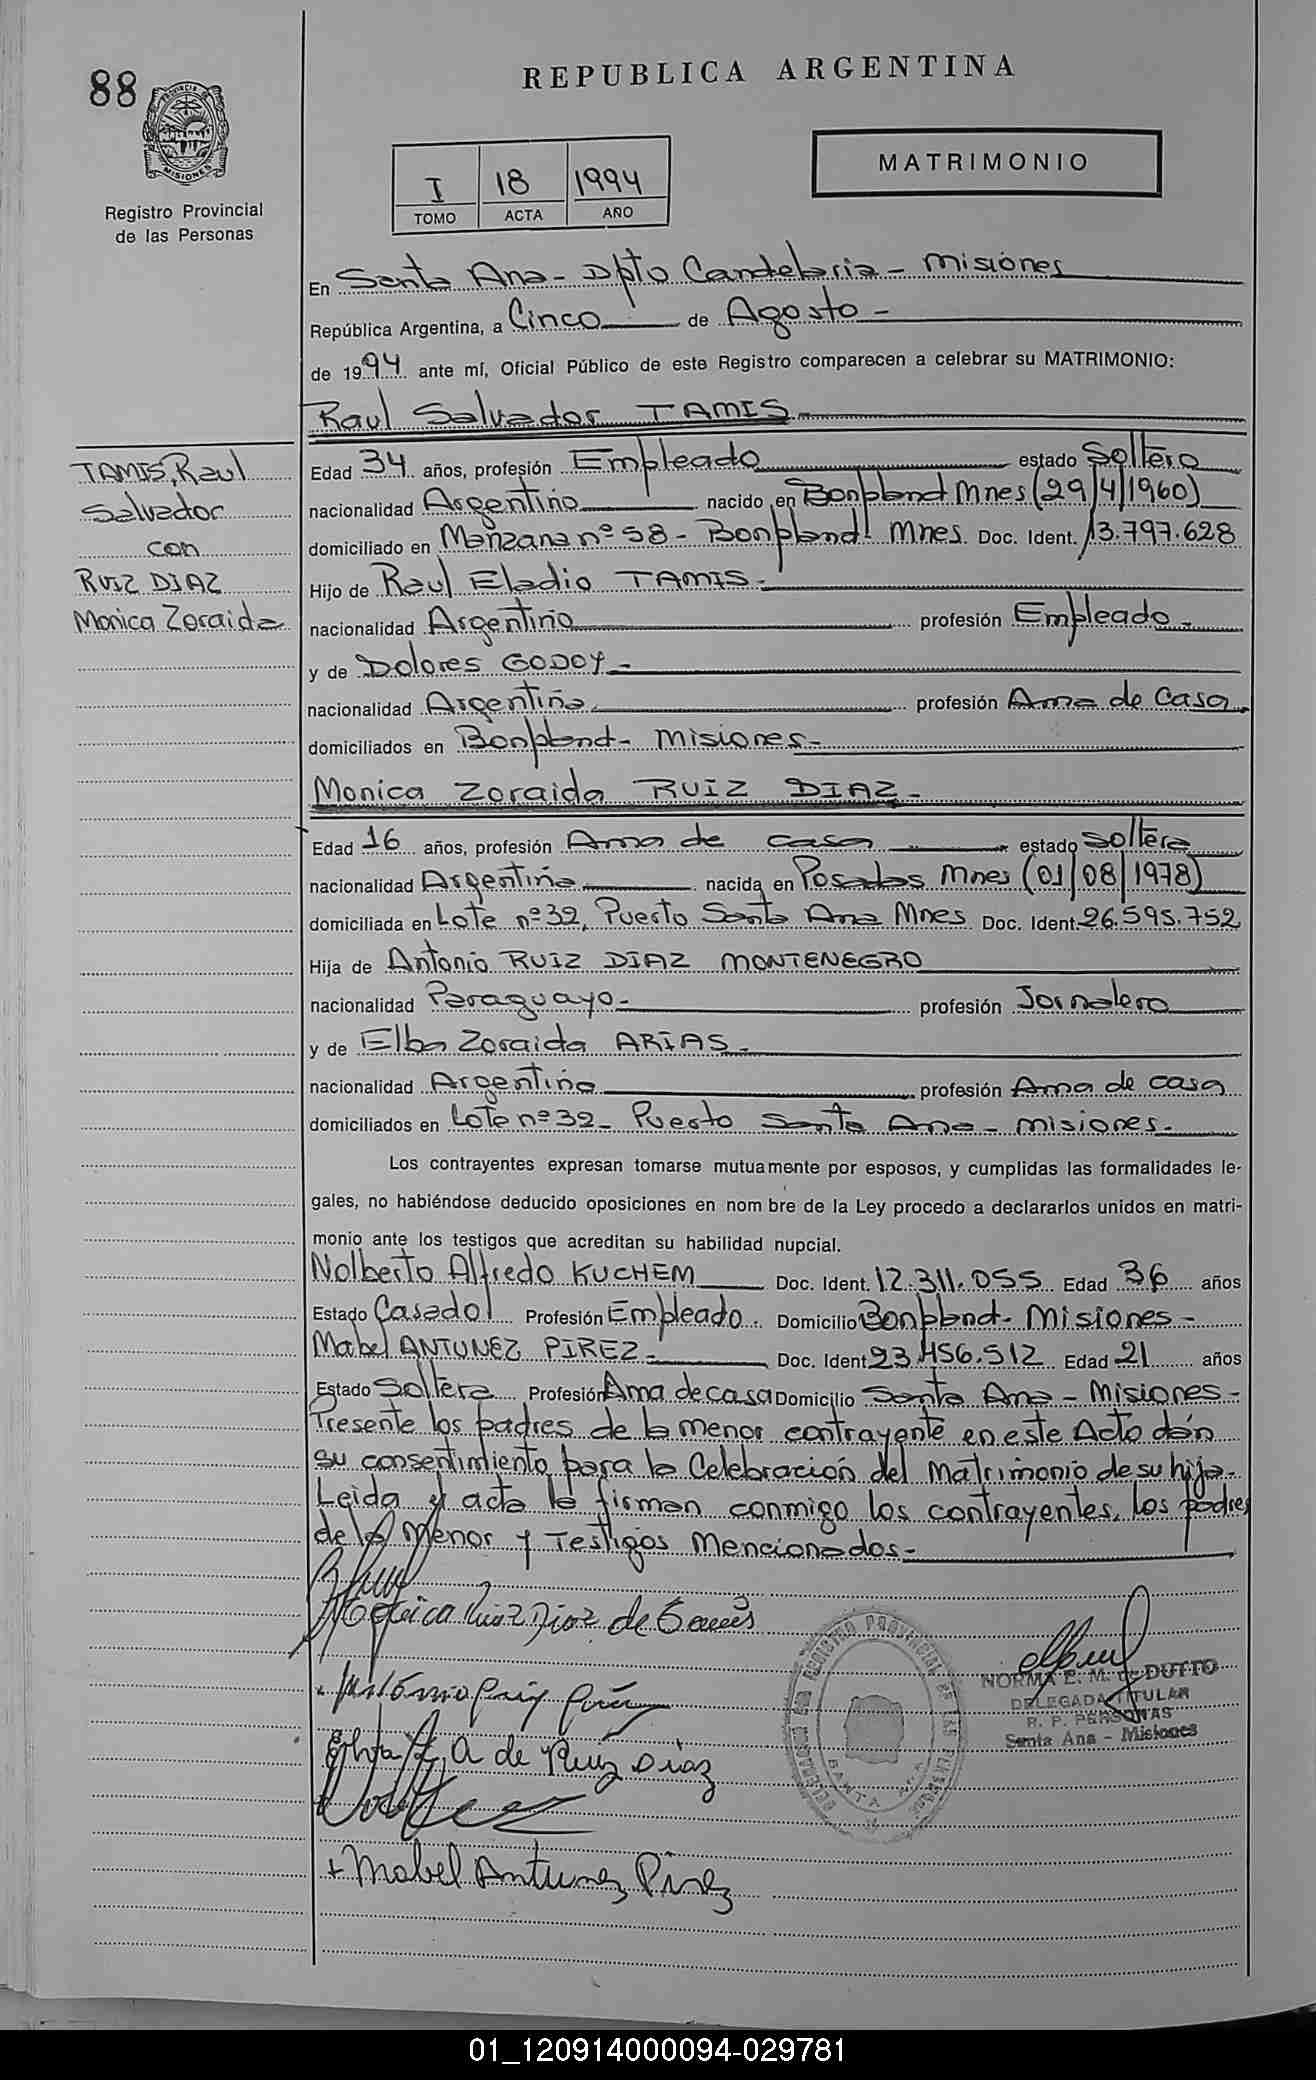 88
REPUBLICA ARGENTINA
PROVINCIA DE
MISIONES
Registro Provincial
de las Personas
I 18 1994
TOMO ACTA AÑO
MATRIMONIO
En Santa Ana - Dpto Candelaria - Misiones
República Argentina, a Cinco de Agosto -
de 1994 ante mí, Oficial Público de este Registro comparecen a celebrar su MATRIMONIO:
Raul Salvador TAMIS
TAMIS, Raul
Salvador
con
RUIZ DIAZ
Monica Zoraida
Edad 34 años, profesión Empleado estado Soltero
nacionalidad Argentino nacido en Bonpland Mnes (29/4/1960)
domiciliado en Manzana nº 58 - Bonpland Mnes. Doc. Ident. 13.797.628
Hijo de Raul Eladio TAMIS.
nacionalidad Argentino profesión Empleado -
y de Dolores GODOY -
nacionalidad Argentina profesión Ama de Casa
domiciliados en Bonpland - Misiones -
Monica Zoraida RUIZ DIAZ -
Edad 16 años, profesión Ama de casa estado soltera
nacionalidad Argentina nacida en Posadas Mnes (01/08/1978)
domiciliada en Lote nº 32, Puerto Santa Ana Mnes Doc. Ident. 26.595.752
Hija de Antonio RUIZ DIAZ MONTENEGRO
nacionalidad Paraguayo - profesión Jornalero
y de Elba Zoraida ARIAS -
nacionalidad Argentina profesión Ama de casa
domiciliados en Lote nº 32 - Puerto Santa Ana - Misiones -
Los contrayentes expresan tomarse mutuamente por esposos, y cumplidas las formalidades le-
gales, no habiéndose deducido oposiciones en nom bre de la Ley procedo a declararlos unidos en matri-
monio ante los testigos que acreditan su habilidad nupcial.
Nolberto Alfredo KUCHEM Doc. Ident. 12.311.055 Edad 36 años
Estado Casado Profesión Empleado. Domicilio Bonpland - Misiones -
Mabel ANTUNEZ PIREZ - Doc. Ident 23.456.512 Edad 21 años
Estado Soltera Profesión Ama de casa Domicilio Santa Ana - Misiones -
Presente los padres de la menor contrayente en este Acto dán
su consentimiento para la Celebración del Matrimonio de su hija.
Leida el acta la firman conmigo los contrayentes, los padres
de la Menor y Testigos Mencionados -
Monica Ruiz Diaz de Tamis
Antonio Ruiz
Elba Z. A de Ruiz Diaz
NORMA E. M. de DUTTO
DELEGADA TITULAR
R. P. PERSONAS
Santa Ana - Misiones
REGISTRO PROVINCIAL DE LAS PERSONAS
SANTA ANA
+ Mabel Antunez Pirez
01_120914000094-029781